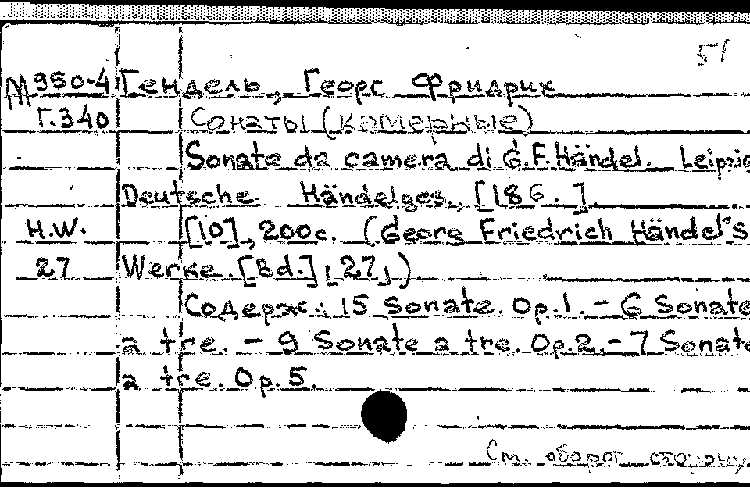 51
М950-4 Гендель, Георг Фридрих
Г.340 Сонаты (камерные)
Sonata da camera di G.F. Händel. Leipzig
Deutsche Händelges., [186.]
H.W. [10], 200с. (Georg Friedrich Händel's
27 Werke. [Bd.] 27)
Содерж.: 15 Sonate. Op.1. - 6 Sonate
a tre. - 9 Sonate a tre. Op.2. - 7 Sonate
a tre. Op.5.
См. оборот. сторону.